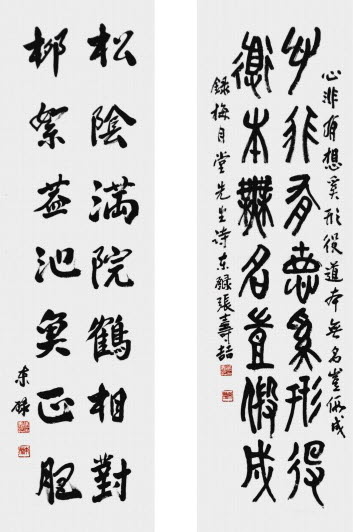 心非有想奚形役道本無名豈假成
心非有想奚形役
道本無名豈假成
錄梅月堂先生诗东張壽喆
松陰滿院鶴相對
柳絮盖池魚正肥
东